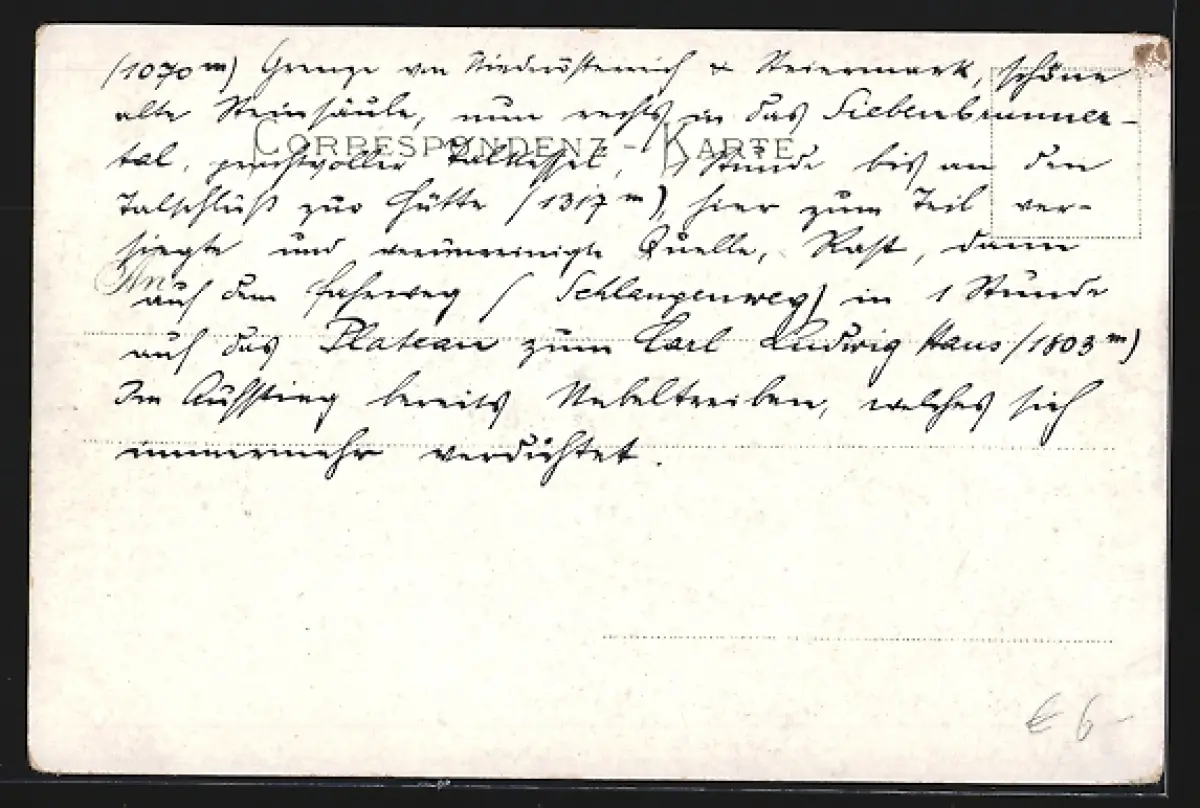 (1070 m) Grenze von Niederösterreich & Steiermark, schöne
alte Steinsäule, nun rechts in das Siebenbrunner-
CORRESPONDENZ-KARTE
tal, prachtvoller Talkessel, Stunde bis an den
Talschluß zur Hütte (1317 m), hier zum Teil ver-
siegte und verunreinigte Quelle, Rast, dann
auf dem Fahrweg (Schlangenweg) in 1 Stunde
auf das Plateau zum Carl Ludwig Haus (1803 m)
Im Aufstieg bereits Nebeltreiben, welches sich
immermehr verdichtet.
€ 6-